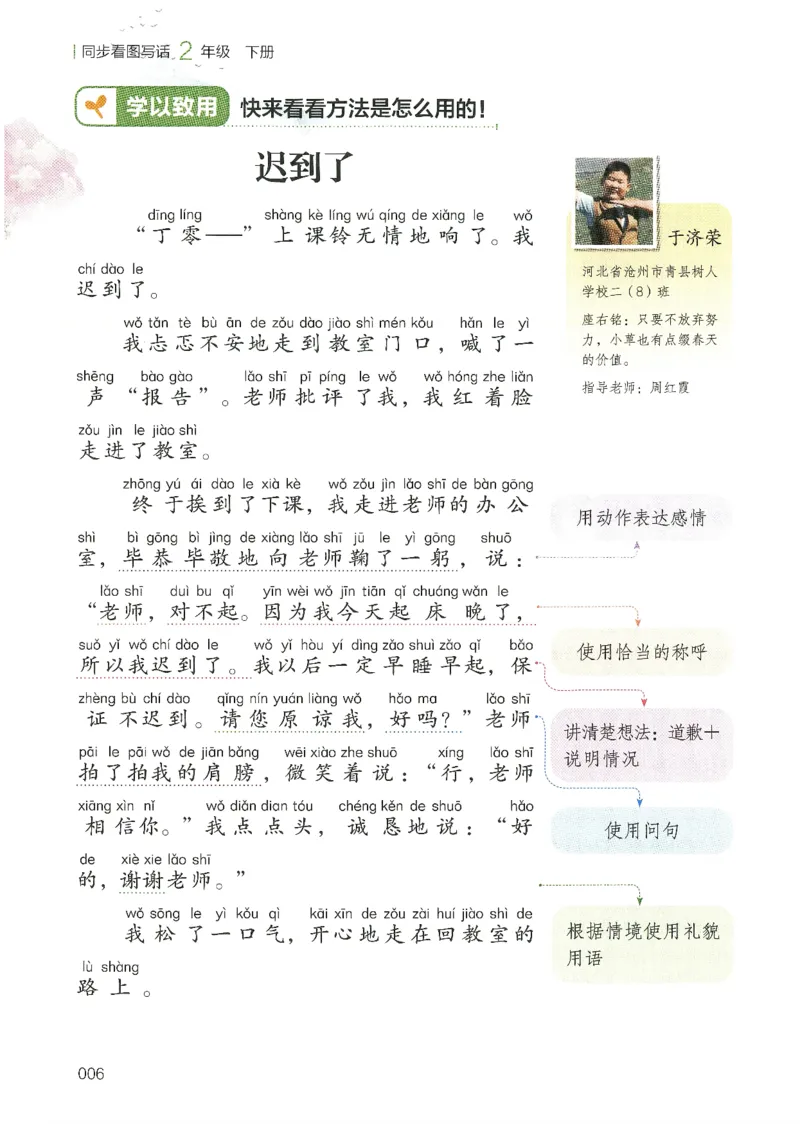 同步看图写话 2 年级 下册
学以致用 快来看看方法是怎么用的！
迟到了
dīng líng shàng kè líng wú qíng de xiǎng le wǒ
“丁零——” 上课铃无情地响了。我
chí dào le
迟到了。
wǒ tǎn tè bù ān de zǒu dào jiào shì mén kǒu hǎn le yì
我忐忑不安地走到教室门口，喊了一
shēng bào gào lǎo shī pī píng le wǒ wǒ hóng zhe liǎn
声“报告”。老师批评了我，我红着脸
zǒu jìn le jiào shì
走进了教室。
zhōng yú ái dào le xià kè wǒ zǒu jìn lǎo shī de bàn gōng
终于挨到了下课，我走进老师的办公
shì bì gōng bì jìng de xiàng lǎo shī jū le yì gōng shuō
室，毕恭毕敬地向老师鞠了一躬，说：
lǎo shī duì bu qǐ yīn wèi wǒ jīn tiān qǐ chuáng wǎn le
“老师，对不起。因为我今天起床晚了，
suǒ yǐ wǒ chí dào le wǒ yǐ hòu yí dìng zǎo shuì zǎo qǐ bǎo
所以我迟到了。我以后一定早睡早起，保
zhèng bù chí dào qǐng nín yuán liàng wǒ hǎo ma lǎo shī
证不迟到。请您原谅我，好吗？”老师
pāi le pāi wǒ de jiān bǎng wēi xiào zhe shuō xíng lǎo shī
拍了拍我的肩膀，微笑着说：“行，老师
xiāng xìn nǐ wǒ diǎn dian tóu chéng kěn de shuō hǎo
相信你。”我点点头，诚恳地说：“好
de xiè xie lǎo shī
的，谢谢老师。”
wǒ sōng le yì kǒu qì kāi xīn de zǒu zài huí jiào shì de
我松了一口气，开心地走在回教室的
lù shàng
路上。
于济荣
河北省沧州市青县树人
学校二（8）班
座右铭：只要不放弃努
力，小草也有点缀春天
的价值。
指导老师：周红霞
用动作表达感情
使用恰当的称呼
讲清楚想法：道歉＋
说明情况
使用问句
根据情境使用礼貌
用语
006